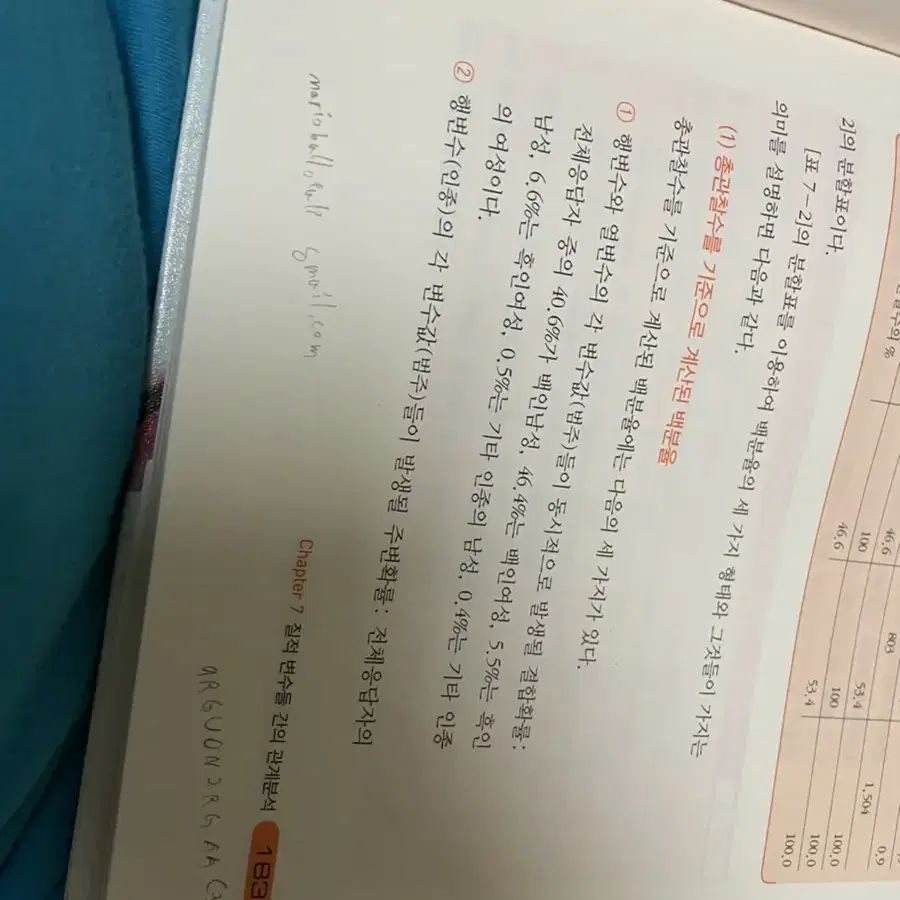 46.6 803
100 53.4 1,504 0.9
46.6 100 100.0
53.4 100.0
100.0
2]의 분할표이다.
[표 7-2]의 분할표를 이용하여 백분율의 세 가지 형태와 그것들이 가지는
의미를 설명하면 다음과 같다.
(1) 총관찰수를 기준으로 계산된 백분율
총관찰수를 기준으로 계산된 백분율에는 다음의 세 가지가 있다.
① 행변수와 열변수의 각 변수값(범주)들이 동시적으로 발생될 결합확률:
전체응답자 중의 40.6%가 백인남성, 46.4%는 백인여성, 5.5%는 흑인
남성, 6.6%는 흑인여성, 0.5%는 기타 인종의 남성, 0.4%는 기타 인종
의 여성이다.
② 행변수(인종)의 각 변수값(범주)들이 발생될 주변확률: 전체응답자의
gmail.com
Chapter 7 질적 변수들 간의 관계분석 183